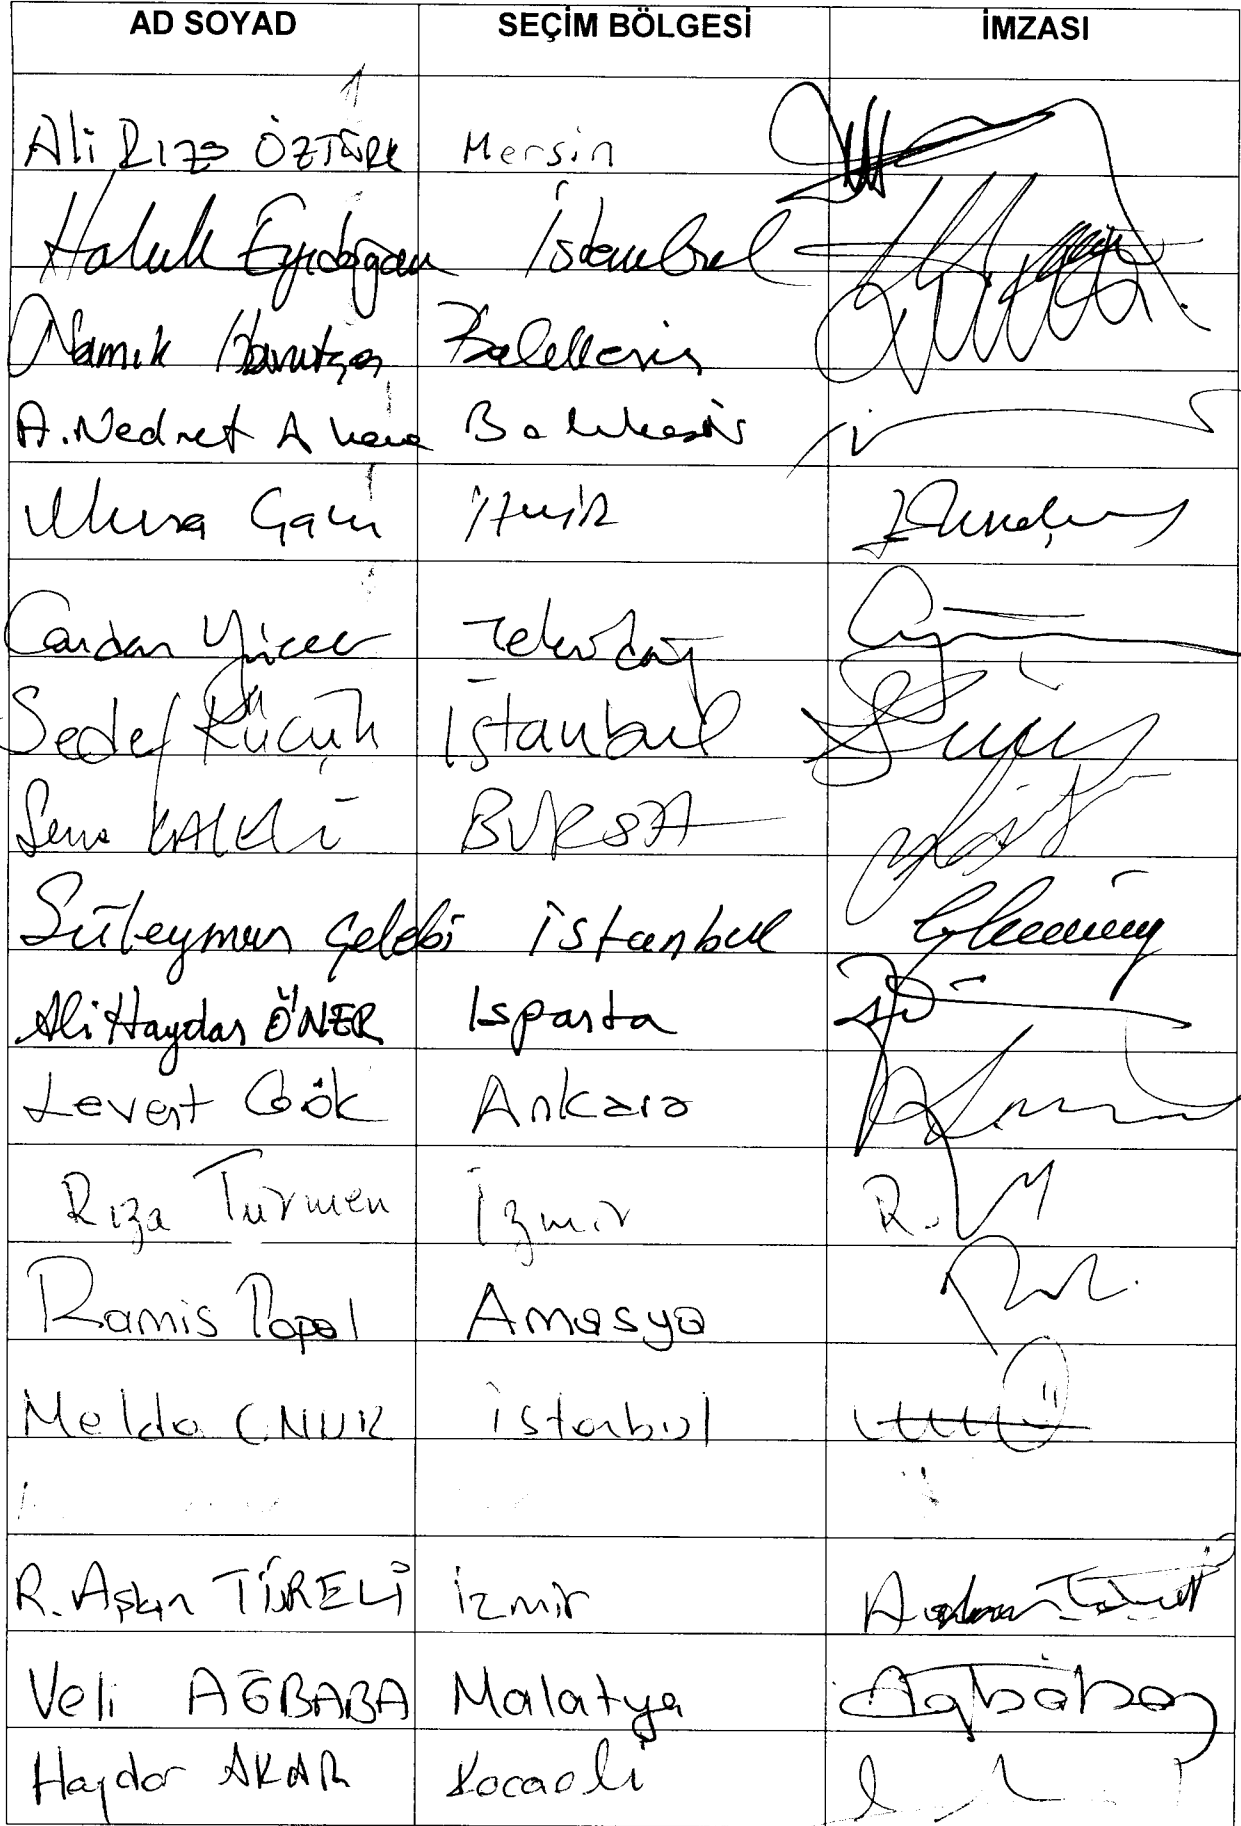 AD SOYAD SEÇİM BÖLGESİ İMZASI
Ali Rıza ÖZTÜRK Mersin
Haluk Eyidoğan İstanbul
Namık Havutça Balıkesir
A. Nedret Akova Balıkesir
Musa Çam İzmir
Candan Yüceer Tekirdağ
Sedef Küçük İstanbul
Sena KALELİ BURSA
Süleyman Çelebi İstanbul
Ali Haydar ÖNER Isparta
Levent Gök Ankara
Rıza Türmen İzmir
Ramis Topal Amasya
Melda ONUR İstanbul
R. Aşkın TÜRELİ İzmir
Veli AĞBABA Malatya Ağbaba
Haydar AKAR Kocaeli